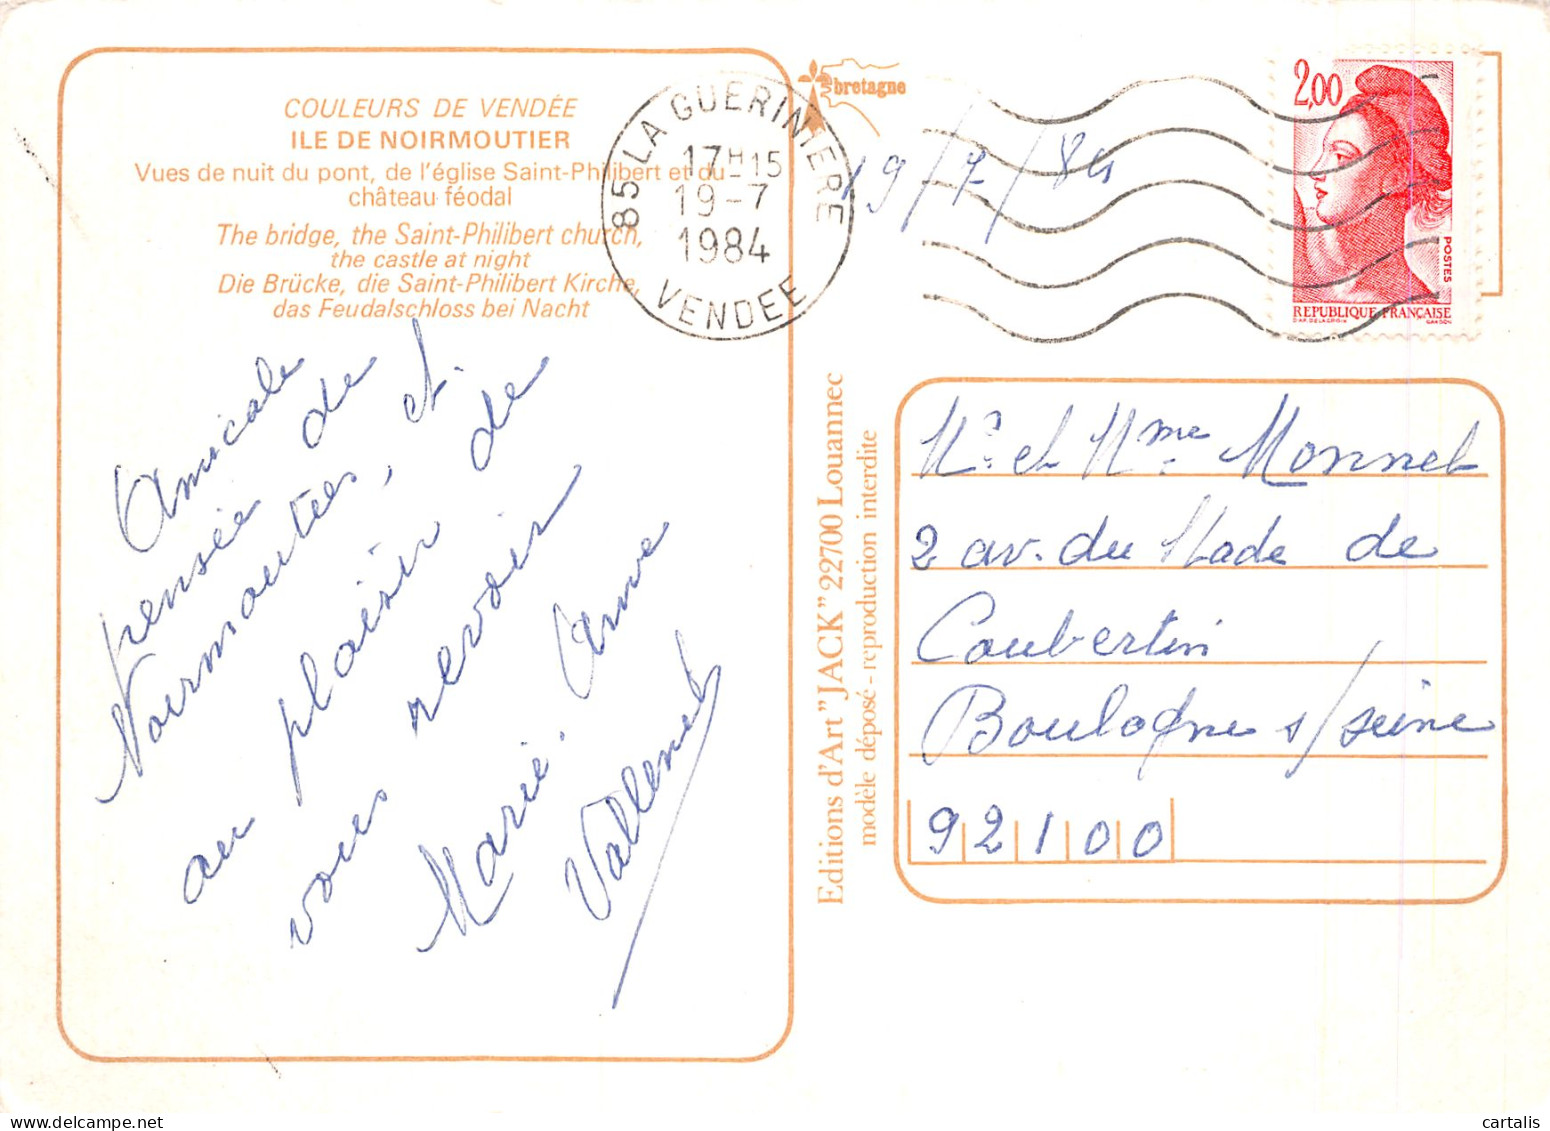 COULEURS DE VENDÉE
ILE DE NOIRMOUTIER
Vues de nuit du pont, de l'église Saint-Philibert et du
château féodal
The bridge, the Saint-Philibert church,
the castle at night
Die Brücke, die Saint-Philibert Kirche,
das Feudalschloss bei Nacht
Amicale
pensée de
Noirmoutier, et
au plaisir de
vous revoir
Marie-Anne
Vallenet
bretagne
85 LA GUERINIERE
17H15
19-7
1984
VENDEE
19/7/84
2,00
POSTES
REPUBLIQUE FRANÇAISE
D'AP. DELACROIX GANDON
Editions d'Art "JACK" 22700 Louannec
modèle déposé - reproduction interdite
Mr et Mme Monnet
2 av. du Stade de
Coubertin
Boulogne s/seine
92100
cartalis